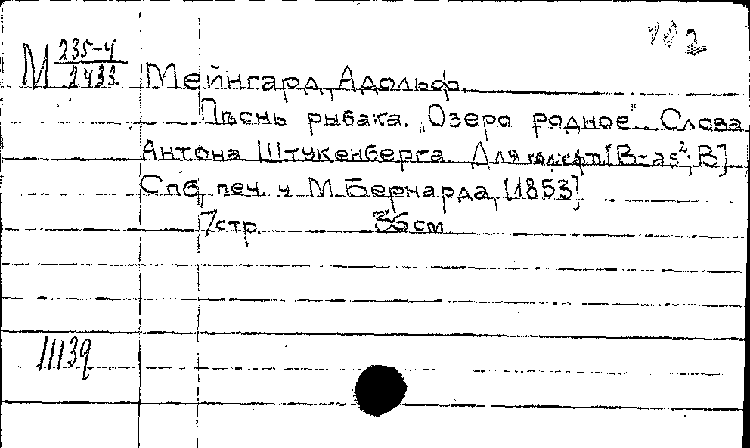 102
М 235-4
2433
Мейнгард, Адольф.
Пѣснь рыбака. „Озеро родное". Слова
Антона Штукенберга. Для [B-as², B]
Спб, печ. у М. Бернарда, [1853]
7 стр. 36 см
11139